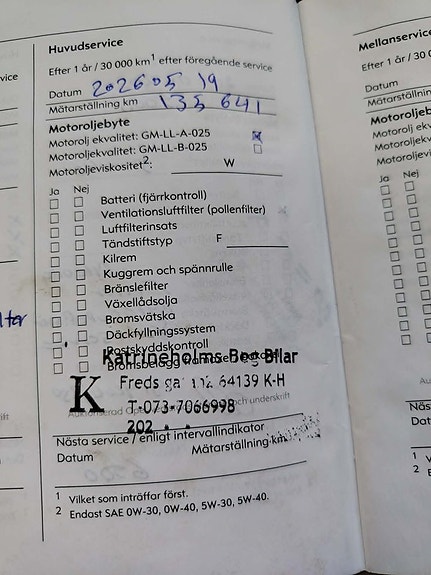 Huvudservice
Efter 1 år / 30 000 km¹ efter föregående service
Datum 20260519
Mätarställning km 135 641
Motoroljebyte
Motorolj ekvalitet: GM-LL-A-025
Motoroljekvalitet: GM-LL-B-025
Motoroljeviskositet²: W
Ja Nej
Batteri (fjärrkontroll)
Ventilationsluftfilter (pollenfilter)
Luftfilterinsats
Tändstiftstyp F
Kilrem
Kuggrem och spännrulle
Bränslefilter
Växellådsolja
Bromsvätska
Däckfyllningssystem
Rostskyddskontroll
Bromsbelägg
Katrineholms Beg Bilar
K
64139 K-H
T:073-7066998
202
och underskrift
Nästa service / enligt intervallindikator
Datum Mätarställning km
¹ Vilket som inträffar först.
² Endast SAE 0W-30, 0W-40, 5W-30, 5W-40.
vice
skrift
Mellanservice
Efter 1 år / 30
Datum
Mätarställnin
Motoroljeb
Motorolj ekv
Motoroljekv
Motoroljevi
Ja Nej
Näst
Dat
¹ V
² E